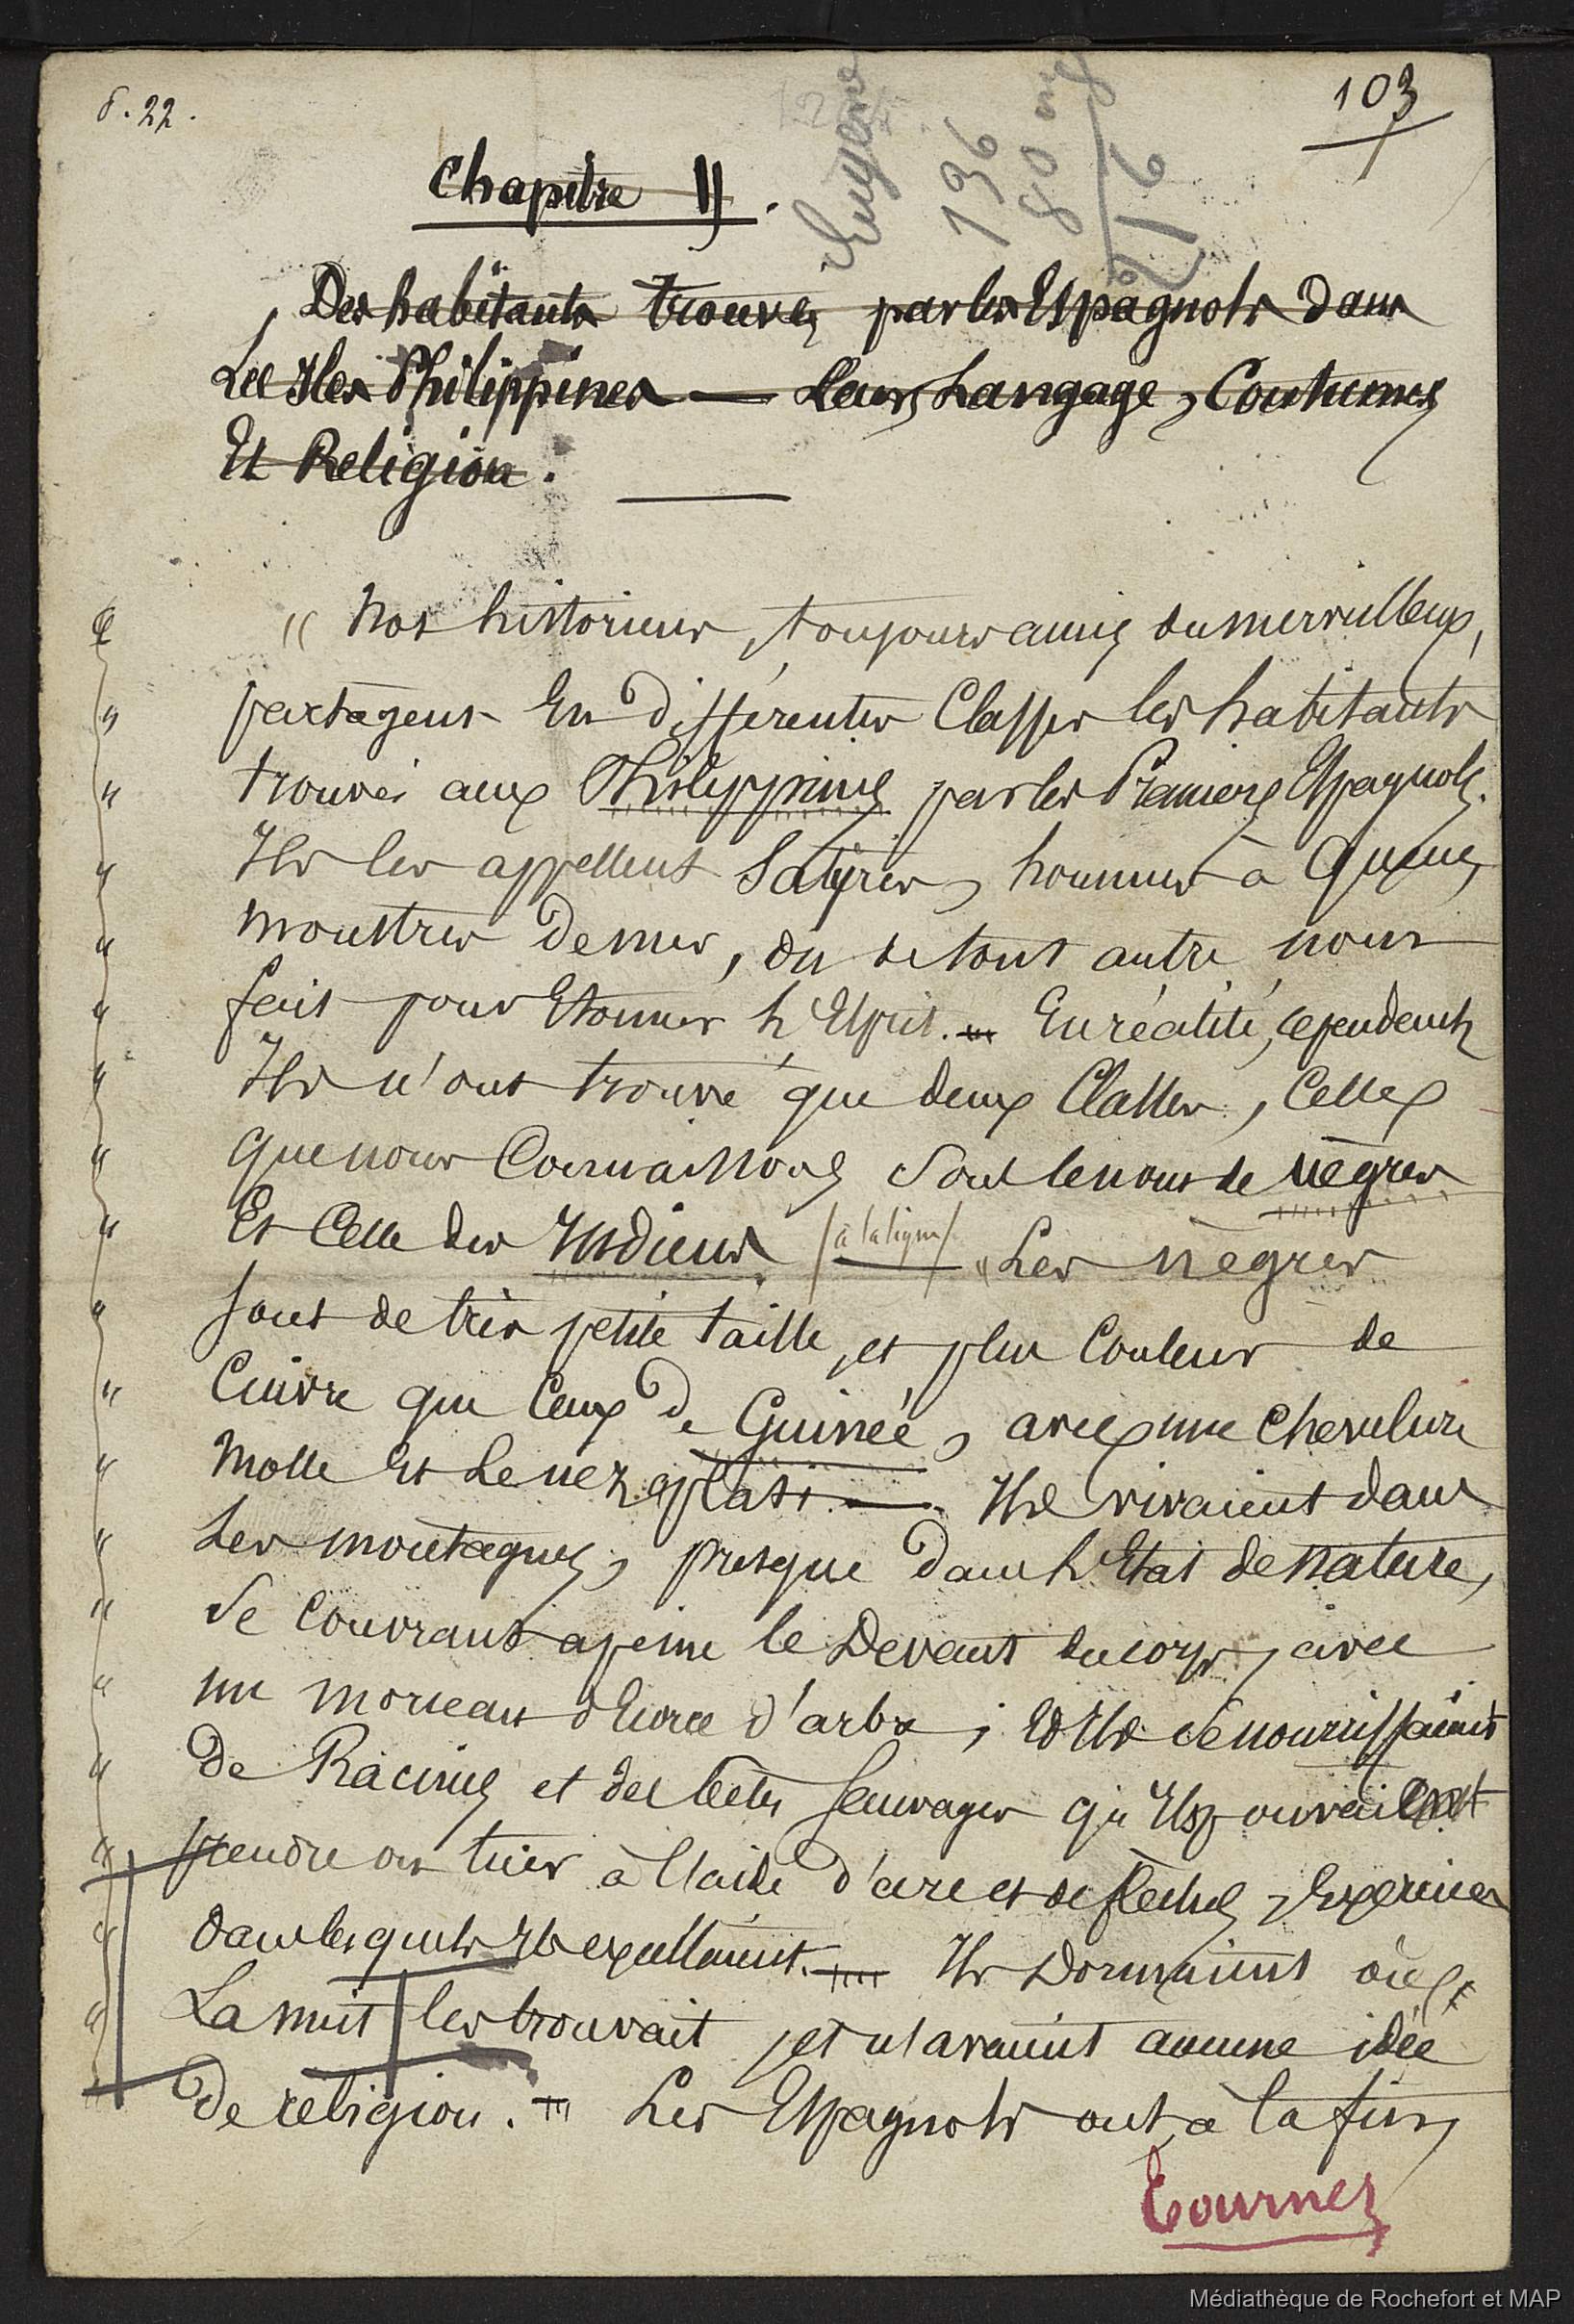 8.22.
103
Eugène
136
80
216
Chapitre II.
Des habitants trouvés par les Espagnols dans
Les Iles Philippines — Leurs Langage, Coutumes
Et Religion.
" Nos historiens, toujours amis du merveilleux,
" partagent En différentes Classes les habitants
" trouvés aux Philippines par les Premiers Espagnols.
" Ils les appellent Satyres, hommes à Queue,
" monstres de mer, ou de tout autre nom
" fait pour Etonner L'Esprit. — En réalité, cependant,
" Ils n'ont trouvé que deux Classes, Celle
" que nous Connaissons sous le nom de nègres
" Et Celle des Indiens. /à la ligne/ — "Les nègres
" sont de très petite taille, et plus Couleur de
" Cuivre que Ceux de Guinée, avec une Chevelure
" Molle Et Le nez aplati. — Ils vivaient dans
" Les montagnes, presque dans L'Etat de nature,
" Se Couvrant à peine le Devant du corps, avec
" un morceau d'Ecorce d'arbre ; Et Ils se nourrissaient
" De Racines et des bêtes Sauvages qu'Ils pouvaient
" prendre ou tuer à l'aide d'arcs et de flèches, Exercices
" Dans lesquels Ils excellaient. — Ils Dormaient où
" La nuit les trouvait, et n'avaient aucune idée
" De religion. — Les Espagnols ont, à la fin,
Tournez
Médiathèque de Rochefort et MAP